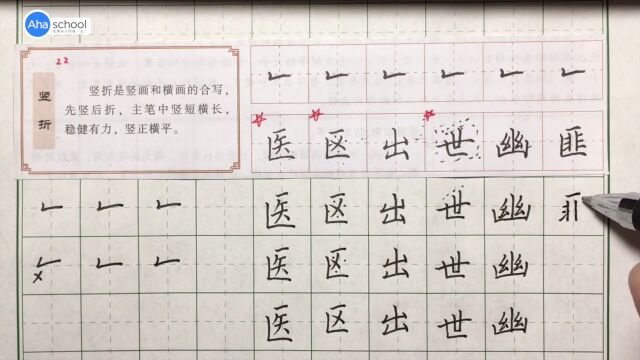 Aha school
22
竖折
竖折是竖画和横画的合写,
先竖后折,主笔中竖短横长,
稳健有力,竖正横平。
医 区 出 世 幽 匪
医 区 出 世 幽
医 区 出 世 幽
医 区 出 世 幽